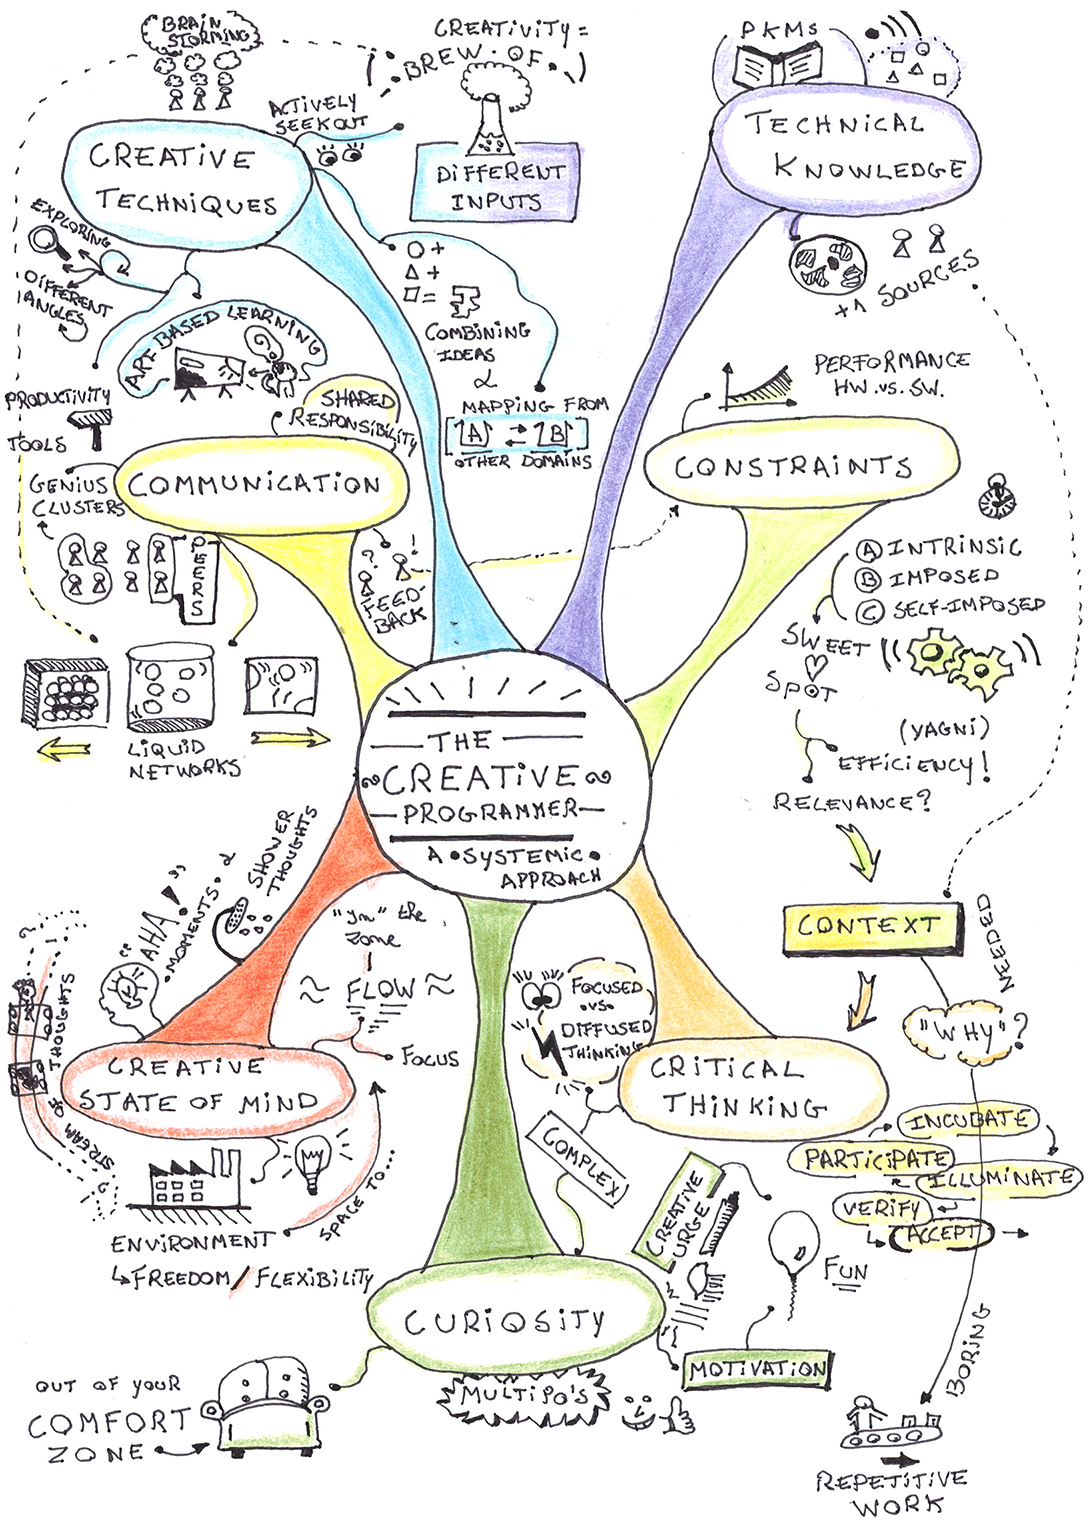 BRAIN
STORMING
CREATIVITY =
BREW OF
PKMs
ACTIVELY
SEEK OUT
DIFFERENT
INPUTS
CREATIVE
TECHNIQUES
TECHNICAL
KNOWLEDGE
EXPLORING
DIFFERENT
ANGLES
○ +
△ +
□ =
COMBINING
IDEAS
&
MAPPING FROM
A ⇄ B
OTHER DOMAINS
+1 SOURCES
ART BASED LEARNING
PRODUCTIVITY
TOOLS
SHARED
RESPONSIBILITY
PERFORMANCE
HW. vs. SW.
COMMUNICATION
CONSTRAINTS
GENIUS
CLUSTERS
PEERS
? !
FEED-
BACK
A INTRINSIC
B IMPOSED
C SELF-IMPOSED
SWEET
SPOT
(YAGNI)
EFFICIENCY!
RELEVANCE?
LIQUID
NETWORKS
THE
CREATIVE
PROGRAMMER
A • SYSTEMIC •
APPROACH
"AHA!"
MOMENTS &
SHOWER
THOUGHTS
"in" the
zone
≈ FLOW ≈
FOCUS
CONTEXT
NEEDED
"WHY"?
FOCUSED
.VS.
DIFFUSED
THINKING
STREAM OF THOUGHTS
CREATIVE
STATE OF MIND
CRITICAL
THINKING
INCUBATE
PARTICIPATE
ILLUMINATE
VERIFY
ACCEPT
COMPLEX
CREATIVE
URGE
SPACE TO...
ENVIRONMENT
↳ FREEDOM / FLEXIBILITY
FUN
CURIOSITY
MOTIVATION
MULTIPO'S
BORING
OUT OF YOUR
COMFORT
ZONE
REPETITIVE
WORK